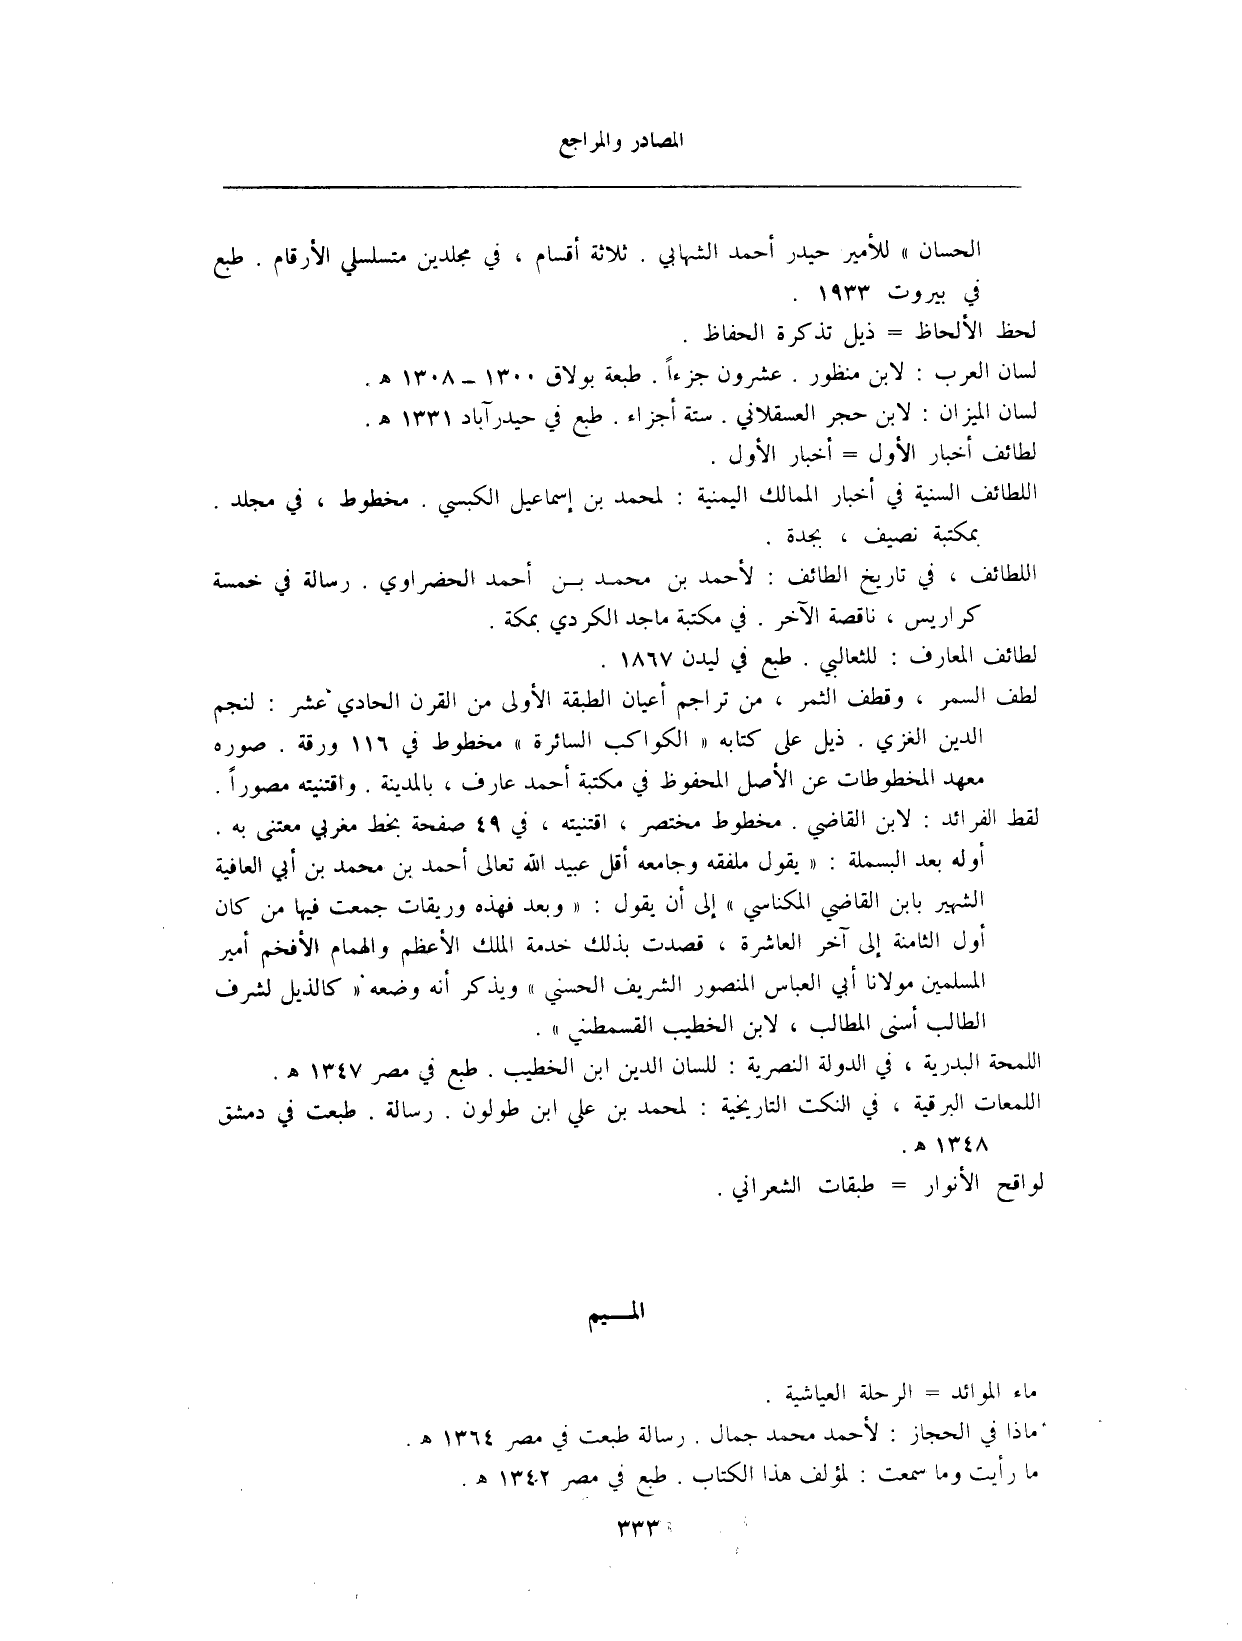 المصادر والمراجع
الحسان » للأمير حيدر أحمد الشهابي . ثلاثة أقسام ، في مجلدين متسلسلي الأرقام . طبع
في بيروت ١٩٣٣ .
لحظ الألحاظ = ذيل تذكرة الحفاظ .
لسان العرب : لابن منظور . عشرون جزءاً . طبعة بولاق ١٣٠٠ ـ ١٣٠٨ ه .
لسان الميزان : لابن حجر العسقلاني . ستة أجزاء . طبع في حيدرآباد ١٣٣١ ه .
لطائف أخبار الأول = أخبار الأول .
اللطائف السنية في أخبار الممالك اليمنية : لمحمد بن إسماعيل الكبسي . مخطوط ، في مجلد .
بمكتبة نصيف ، بجدة .
اللطائف ، في تاريخ الطائف : لأحمد بن محمد بن أحمد الحضراوي . رسالة في خمسة
كراريس ، ناقصة الآخر . في مكتبة ماجد الكردي بمكة .
لطائف المعارف : للثعالبي . طبع في ليدن ١٨٦٧ .
لطف السمر ، وقطف الثمر ، من تراجم أعيان الطبقة الأولى من القرن الحادي عشر : لنجم
الدين الغزي . ذيل على كتابه « الكواكب السائرة » مخطوط في ١١٦ ورقة . صوره
معهد المخطوطات عن الأصل المحفوظ في مكتبة أحمد عارف ، بالمدينة . واقتنيته مصوراً .
لقط الفرائد : لابن القاضي . مخطوط مختصر ، اقتنيته ، في ٤٩ صفحة بخط مغربي معتنى به .
أوله بعد البسملة : « يقول ملفقه وجامعه أقل عبيد الله تعالى أحمد بن محمد بن أبي العافية
الشهير بابن القاضي المكناسي » إلى أن يقول : « وبعد فهذه وريقات جمعت فيها من كان
أول الثامنة إلى آخر العاشرة ، قصدت بذلك خدمة الملك الأعظم والهمام الأفخم أمير
المسلمين مولانا أبي العباس المنصور الشريف الحسني » ويذكر أنه وضعه « كالذيل لشرف
الطالب أسنى المطالب ، لابن الخطيب القسمطني » .
اللمحة البدرية ، في الدولة النصرية : للسان الدين ابن الخطيب . طبع في مصر ١٣٤٧ ه .
اللمعات البرقية ، في النكت التاريخية : لمحمد بن علي ابن طولون . رسالة . طبعت في دمشق
١٣٤٨ ه .
لواقح الأنوار = طبقات الشعراني .
المـيم
ماء الموائد = الرحلة العياشية .
ماذا في الحجاز : لأحمد محمد جمال . رسالة طبعت في مصر ١٣٦٤ ه .
ما رأيت وما سمعت : لمؤلف هذا الكتاب . طبع في مصر ١٣٤٢ ه .
٣٣٣